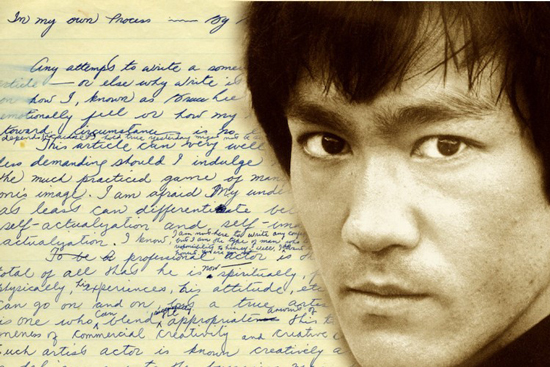 In my own Process — By
Any attempts to write a some
article — or else why write is
or how I, known as Bruce Lee
emotionally feel or how my
toward circumstances is so
This article can very well
less demanding should I indulge
the much practiced game of man
one's image. I am afraid My und
as least can differentiate be
self-actualization and self-im
I am not here to write any
actualization". I know, but I am the type of man who
To be a professional actor is th
total of all that he is now — spiritually, p
physically, his experiences, his attitude, etc
can go on and on a true artis
is one who can blend appropriate this to
oneness of commercial creativity and creative
Such artist actor is known creatively a